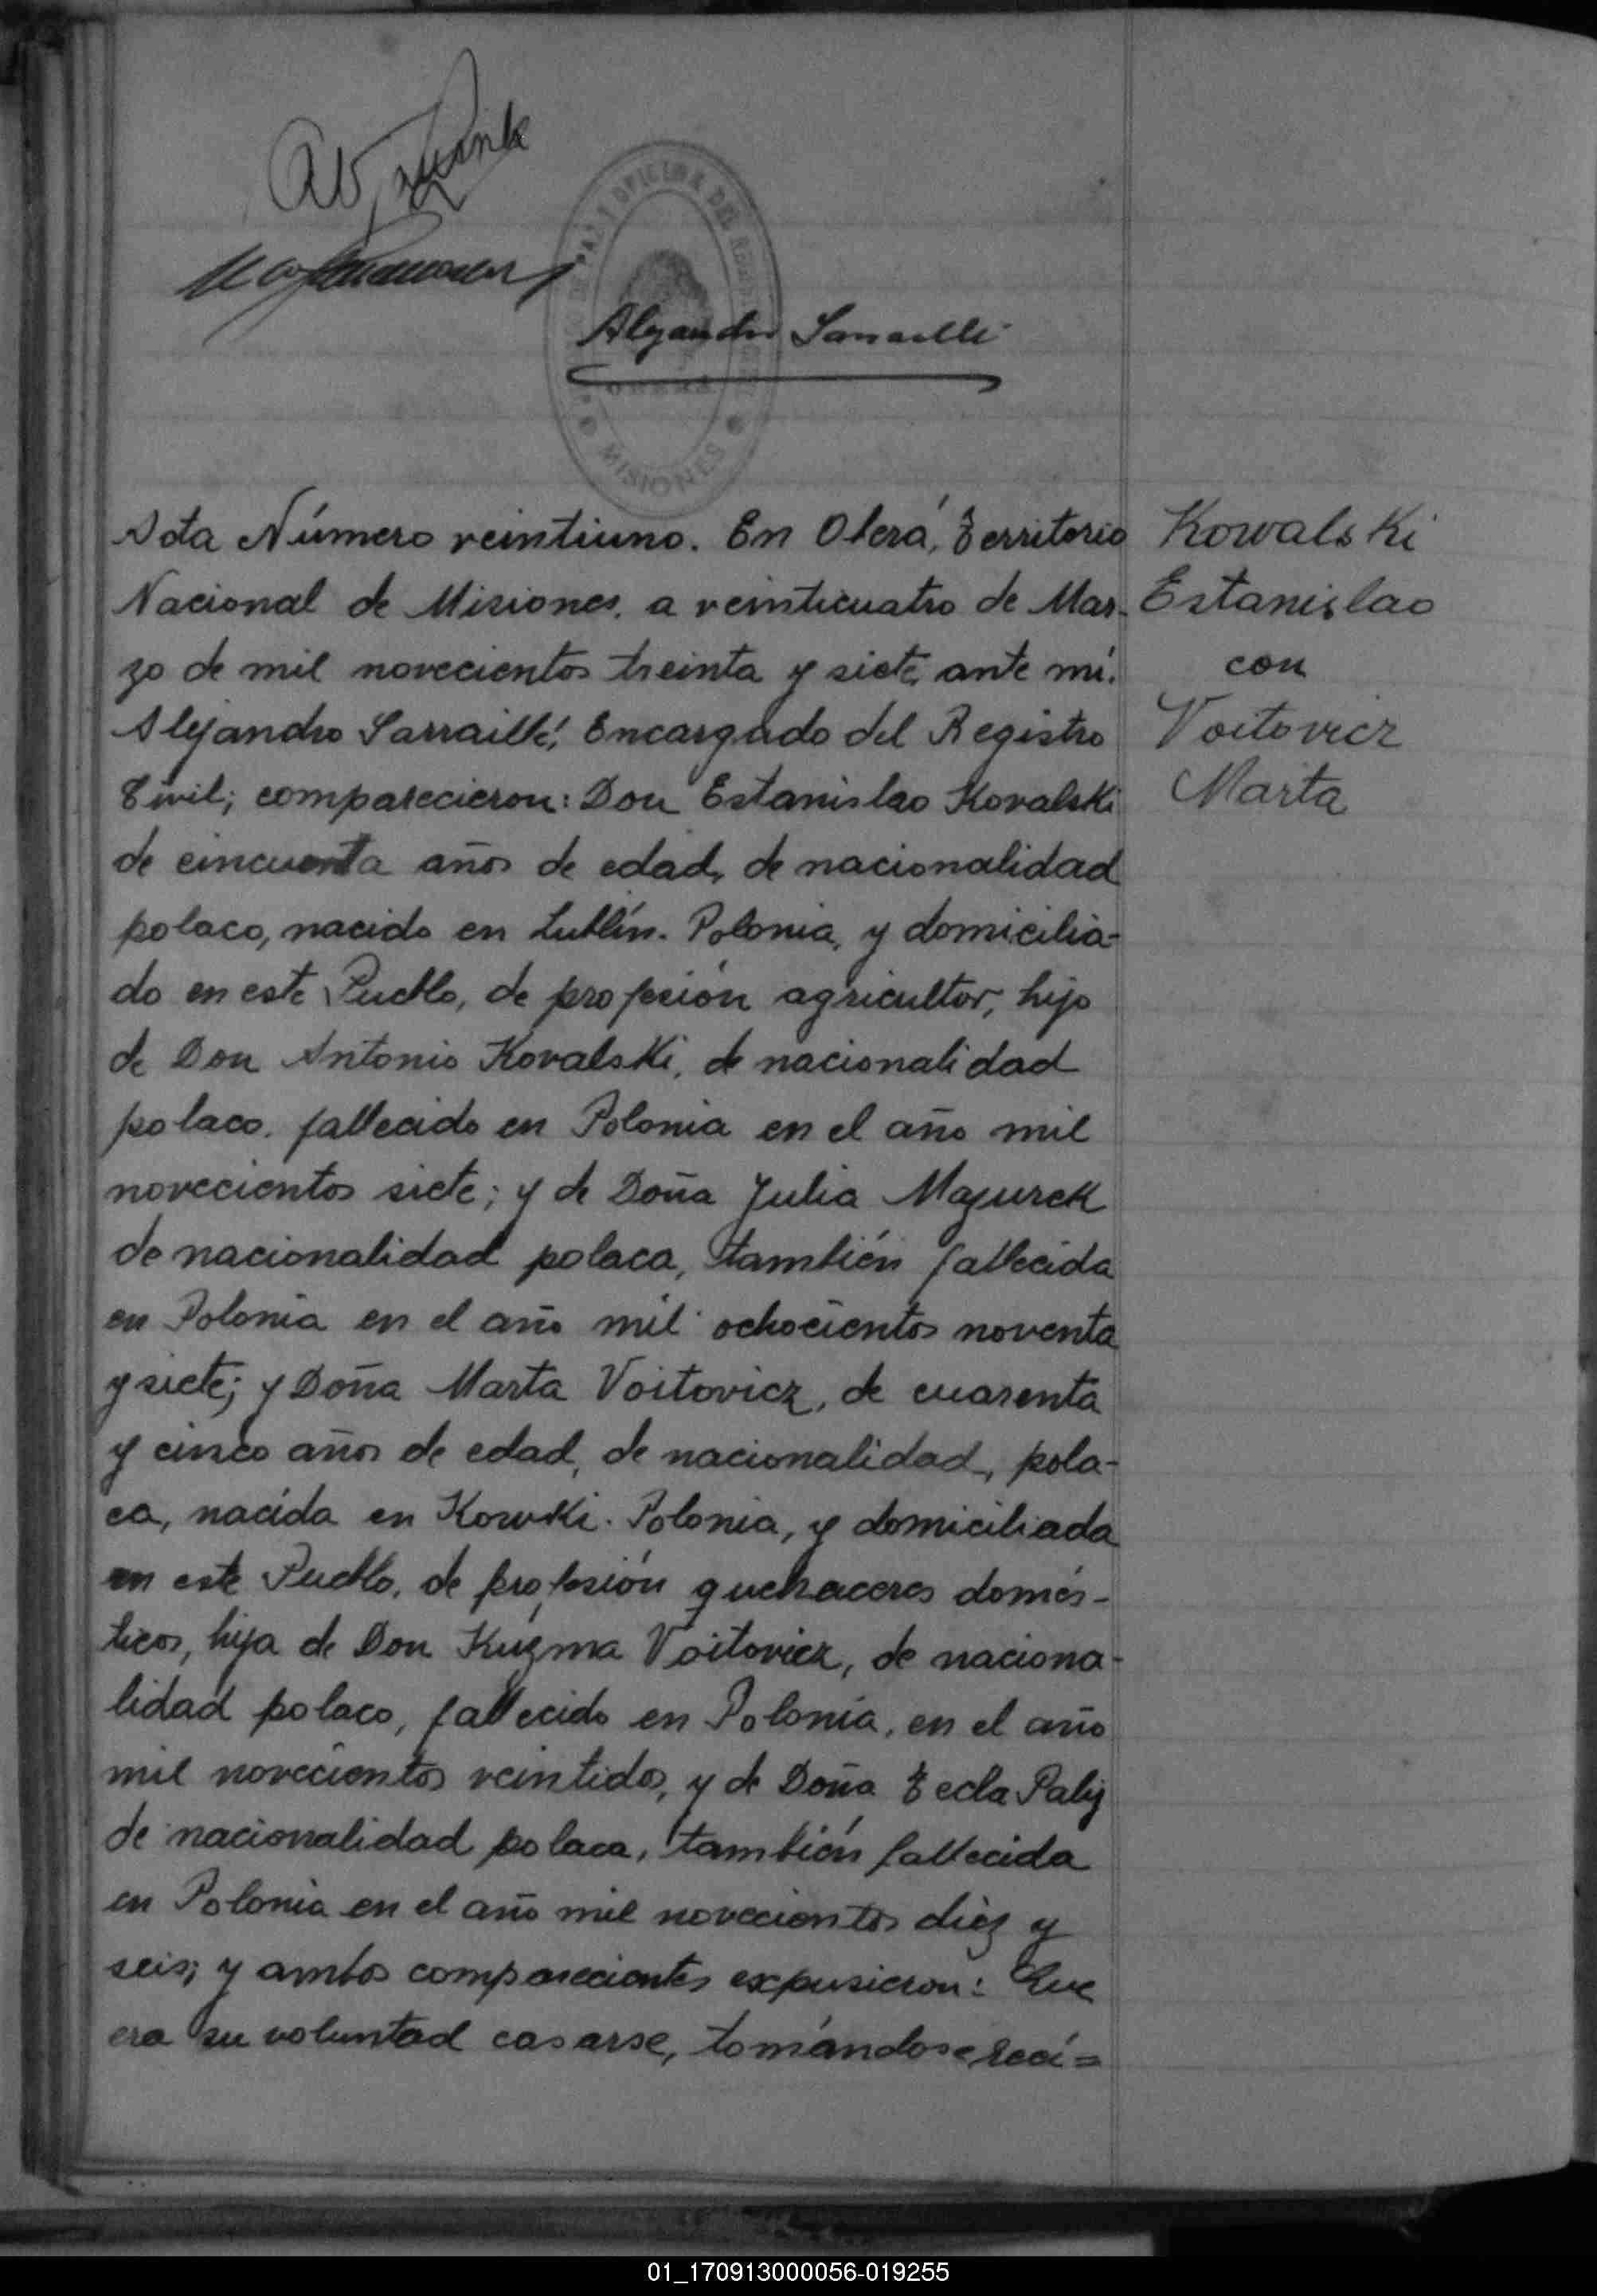 Alejandro Sarraillé
MISIONES
Acta Número veintiuno. En Oberá, Territorio
Nacional de Misiones, a veinticuatro de Mar-
zo de mil novecientos treinta y siete, ante mí.
Alejandro Sarraillé, Encargado del Registro
Civil; comparecieron: Don Estanislao Kovalski
de cincuenta años de edad, de nacionalidad
polaco, nacido en Lublín. Polonia, y domicilia-
do en este Pueblo, de profesión agricultor, hijo
de Don Antonio Kovalski, de nacionalidad
polaco. fallecido en Polonia en el año mil
novecientos siete; y de Doña Julia Mazurek
de nacionalidad polaca, también fallecida
en Polonia en el año mil ochocientos noventa
y siete; y Doña Marta Voitovicz, de cuarenta
y cinco años de edad, de nacionalidad, pola-
ca, nacida en Kowki. Polonia, y domiciliada
en este Pueblo, de profesión quehaceres domés-
ticos, hija de Don Kuzma Voitovicz, de naciona-
lidad polaco, fallecido en Polonia, en el año
mil novecientos veintidos, y de Doña Tecla Palij
de nacionalidad polaca, también fallecida
en Polonia en el año mil novecientos diez y
seis; y ambos comparecientes expusieron: Que
era su voluntad casarse, tomándose recí=
Kowalski
Estanislao
con
Voitovicz
Marta
01_170913000056-019255